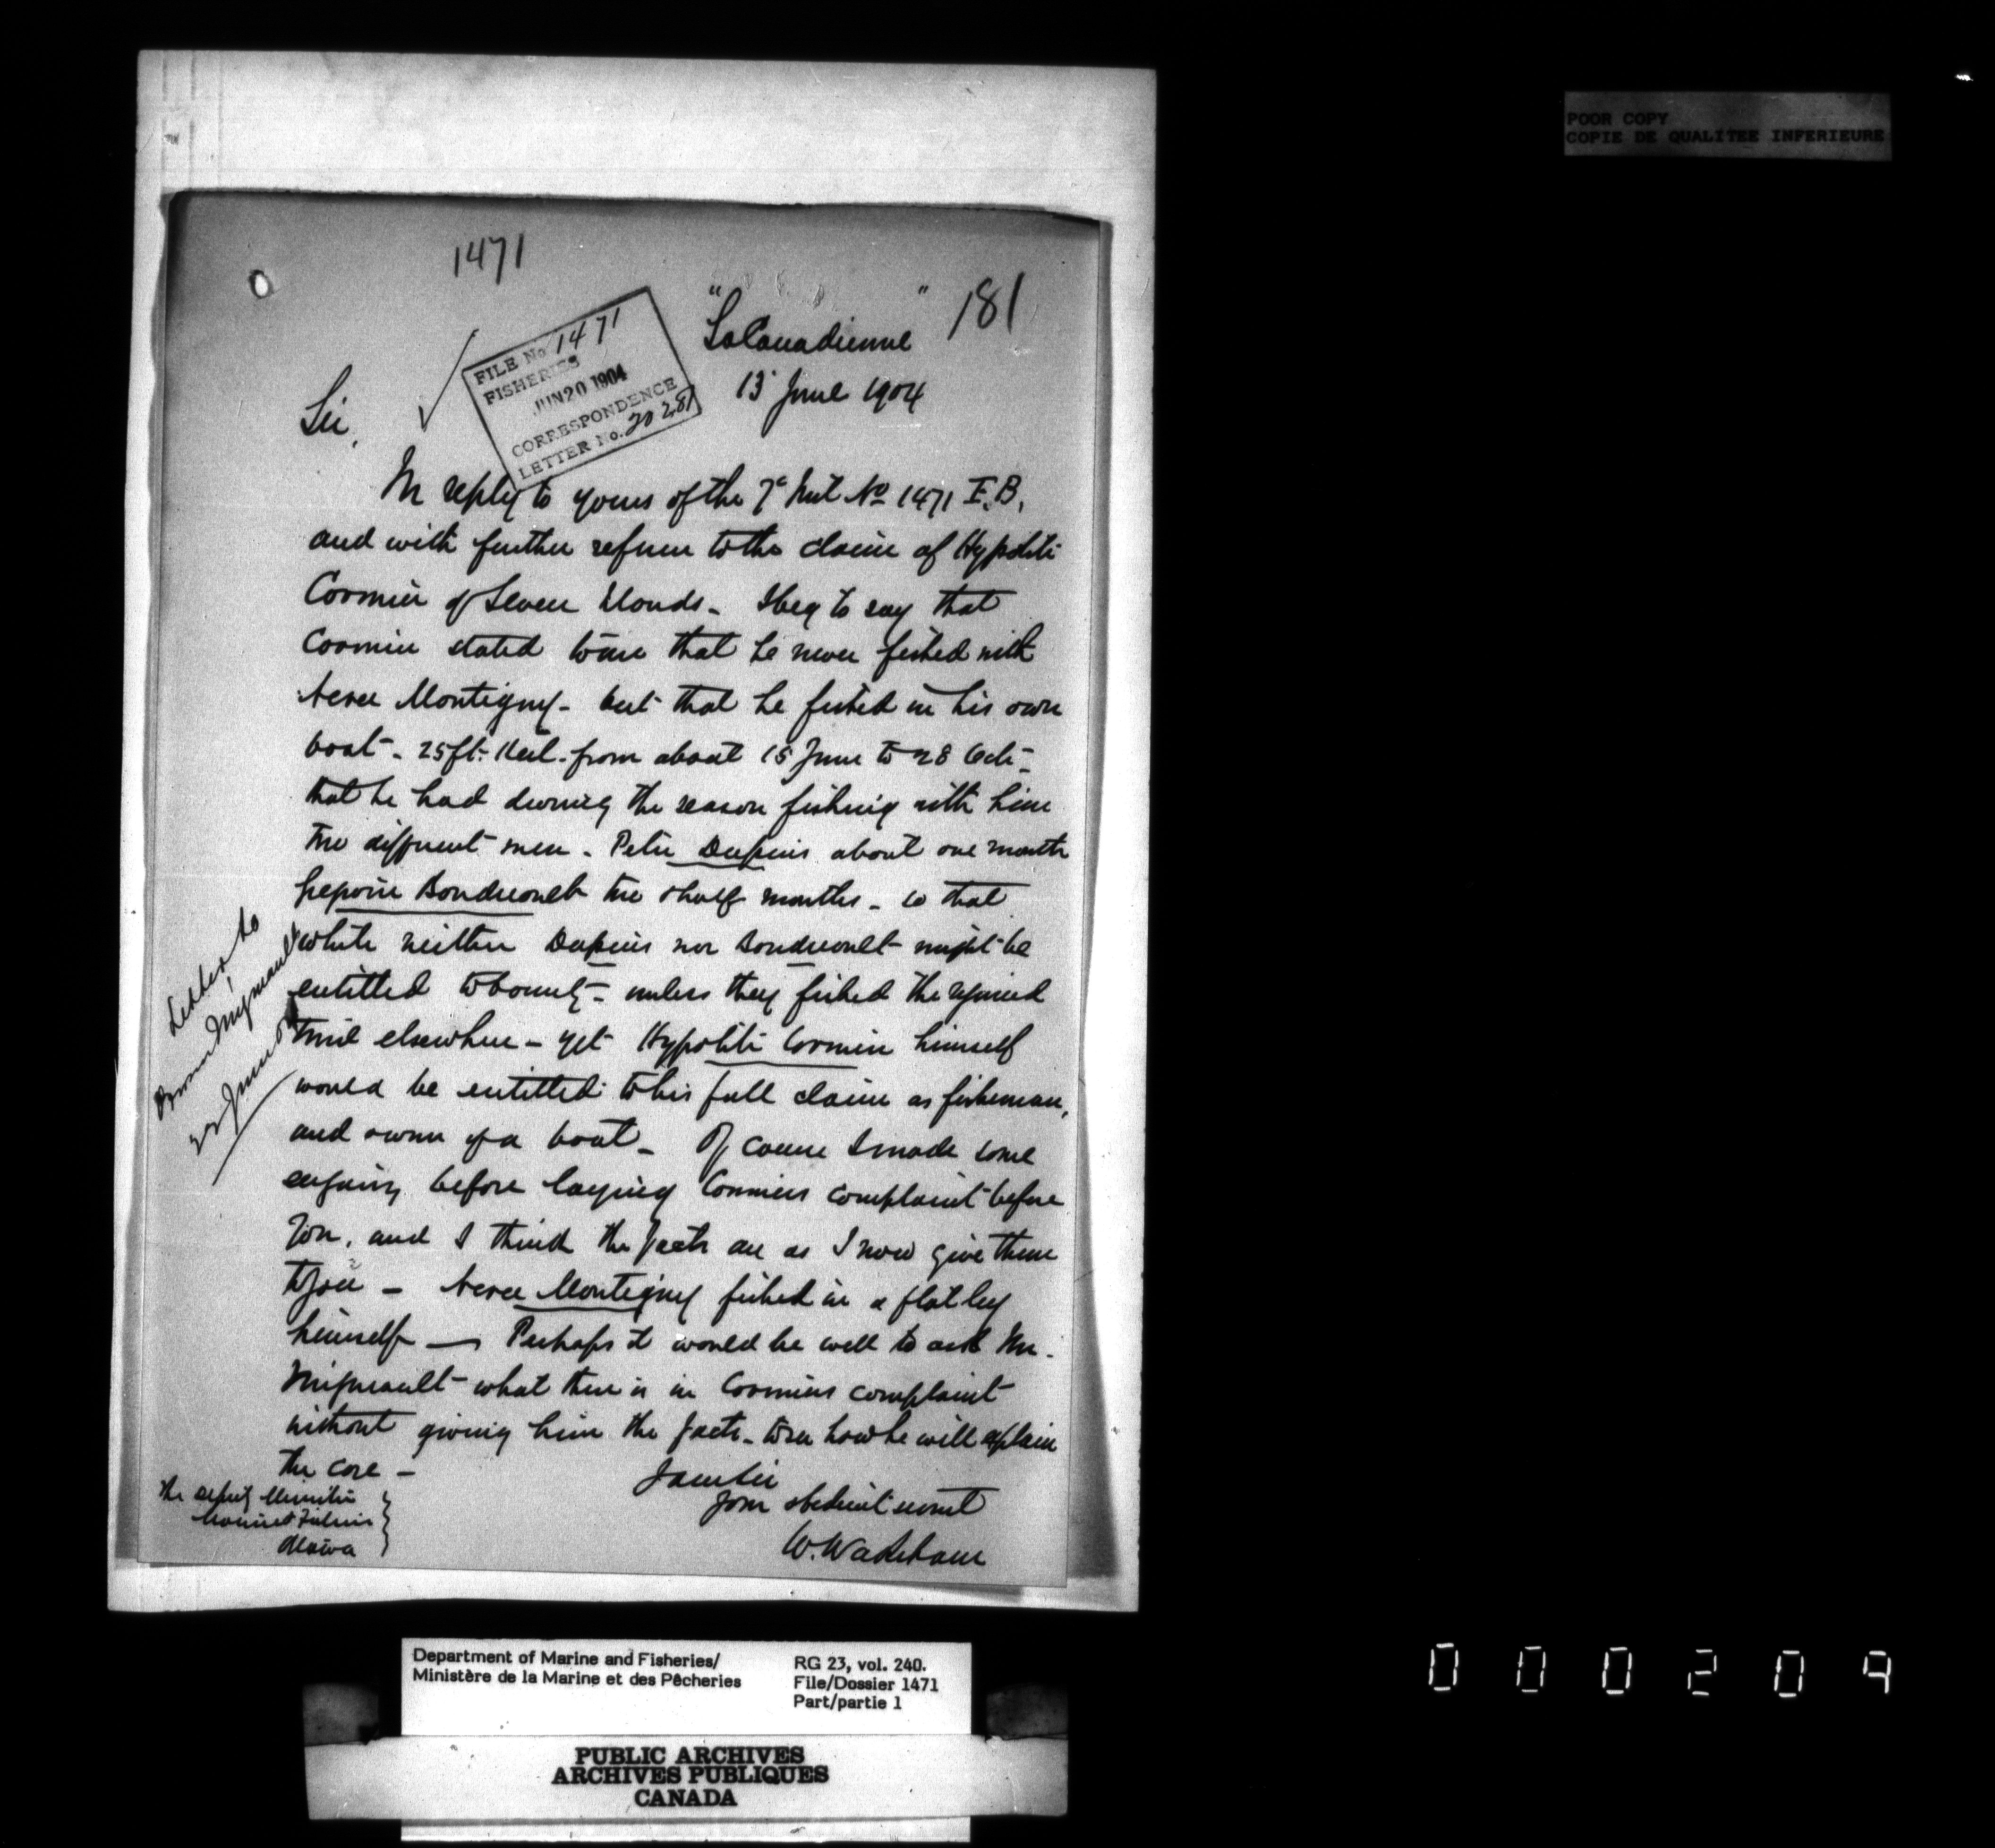 POOR COPY
COPIE DE QUALITEE INFERIEURE
1471
181
"La Canadienne"
13 June 1904
FILE No. 1471
FISHERIES
JUN 20 1904
CORRESPONDENCE
LETTER No. 20281
Sir,
In reply to yours of the 7th Inst No 1471 F.B.
and with further reference to the claim of Hypolite
Cormier of Seven Islands - I beg to say that
Cormier stated to me that he never fished with
Neree Montigny - but that he fished in his own
boat - 25 ft. Keel - from about 15 June to 28 Oct -
that he had during the season fishing with him
two different men - Peter Dupuis about one month
Boudreault two & half months - so that
while neither Dupuis nor Boudreault might be
entitled to bounty - unless they fished the required
time elsewhere - yet Hypolite Cormier himself
would be entitled to his full claim as fisherman,
and owner of a boat - Of course I made some
enquiry before laying Cormiers complaint before
You, and I think the facts are as I now give them
to you - Neree Montigny fished in a flat by
himself - Perhaps it would be well to ask Mr.
Migneault what there is in Cormiers complaint
without giving him the facts - to see how he will explain
the case -
I am Sir
Your obedient servant
W. Wakeham
The Deputy Minister
Marine & Fisheries
Ottawa
Letter to
Migneault
22 June 04
Department of Marine and Fisheries/
Ministère de la Marine et des Pêcheries
RG 23, vol. 240.
File/Dossier 1471
Part/partie 1
PUBLIC ARCHIVES
ARCHIVES PUBLIQUES
CANADA
000209